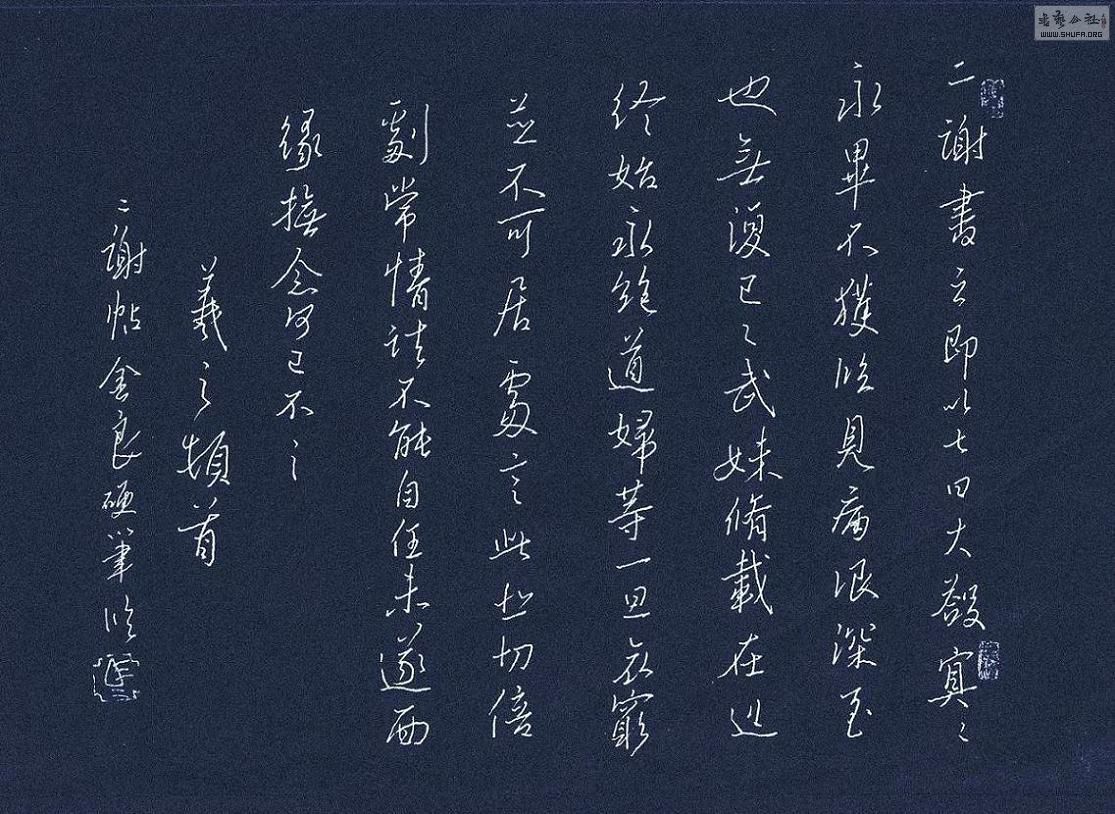 書藝公社
WWW.SHUFA.ORG
二謝書云即以七日大斂冥〻
永畢不獲臨見痛恨深至
也無復已〻武妹脩載在
終始永絕道婦等一旦哀窮
並不可居處言此悲切倍
劇常情諸不能自任未遂面
緣撫念何已不〻
羲之頓首
二謝帖金良硬筆臨